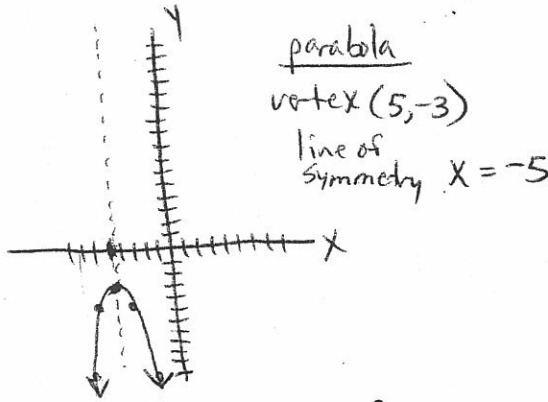 Y
parabola
vertex (5,-3)
line of
symmetry X = -5
X